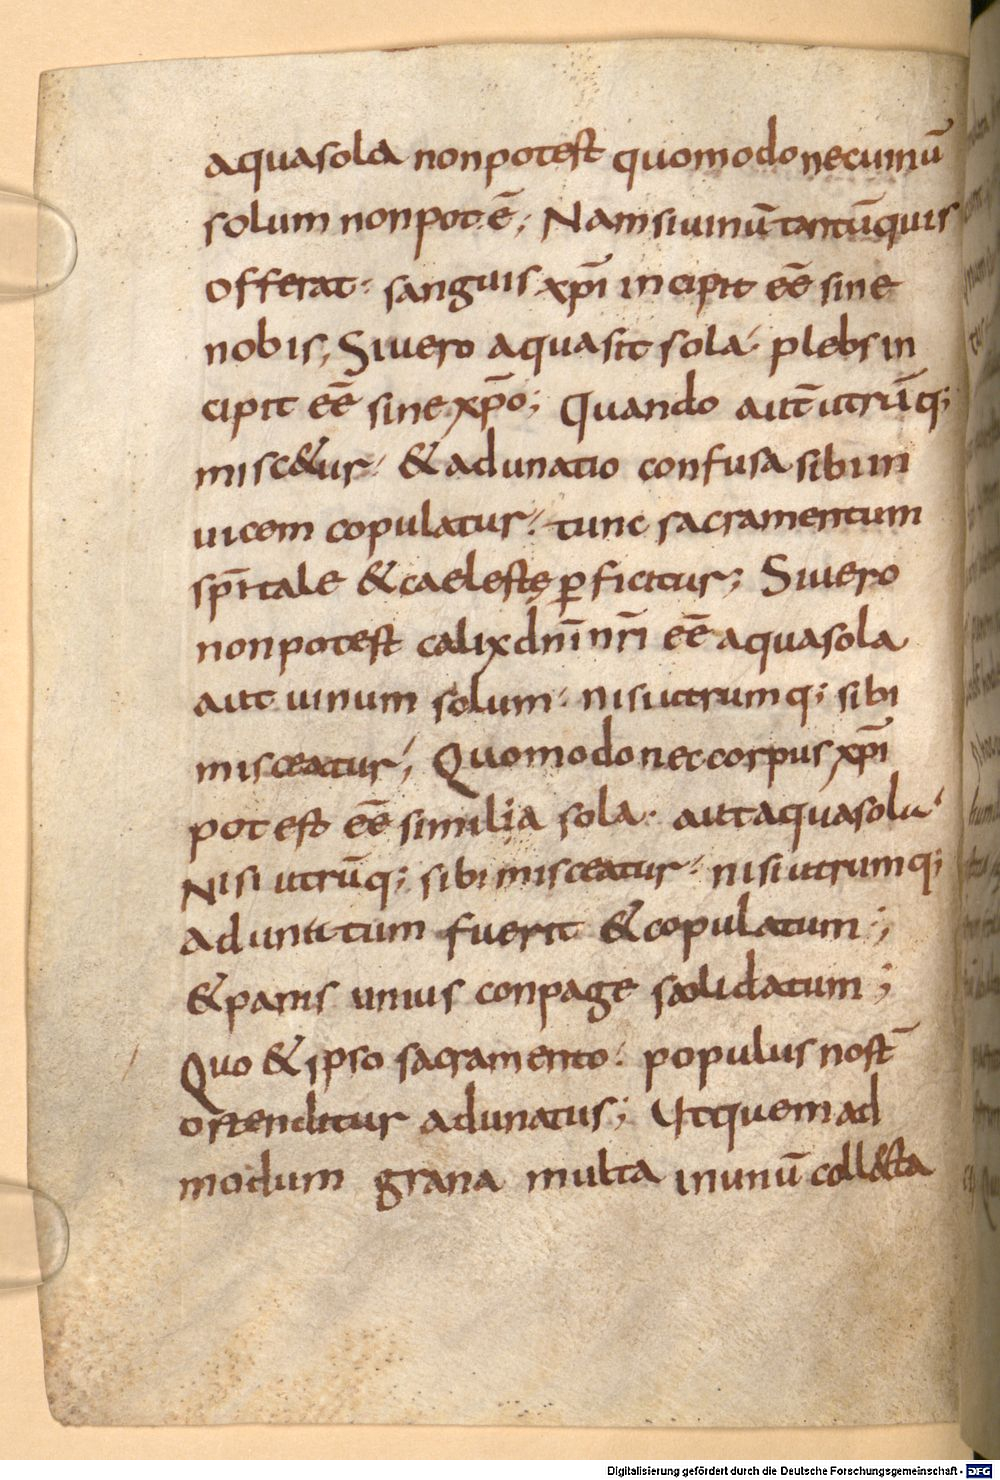 aqua sola non potest quomodo nec uinū
solum non potē; Nam si uinū tantū quis
offerat· sanguis xp̄i incipit eē sine
nobis; Si uero aqua sit sola· plebs in
cipit eē sine xp̄o; Quando aut̄ utrūq;
misc&ur· & adunatio confusa sibi in
uicem copulatur· tunc sacramentum
sp̄itale & caelestę ꝑficitur; Si uero
non potest calix dn̄i nr̄i eē aqua sola
aut uinum solum· nisi utrumq; sibi
misceatur; Quomodo nec corpus xp̄i
potest eē similia sola· aut aqua sola·
Nisi utrūq; sibi misceatur· nisi utrumq;
adunitum fuerit & copulatum;
& panis unius conpage solidatum;
Quo & ipso sacramento· populus nost̄
ostenditur adunatus; Ut quem ad
modum grana multa in unū coll&cta
Digitalisierung gefördert durch die Deutsche Forschungsgemeinschaft - DFG